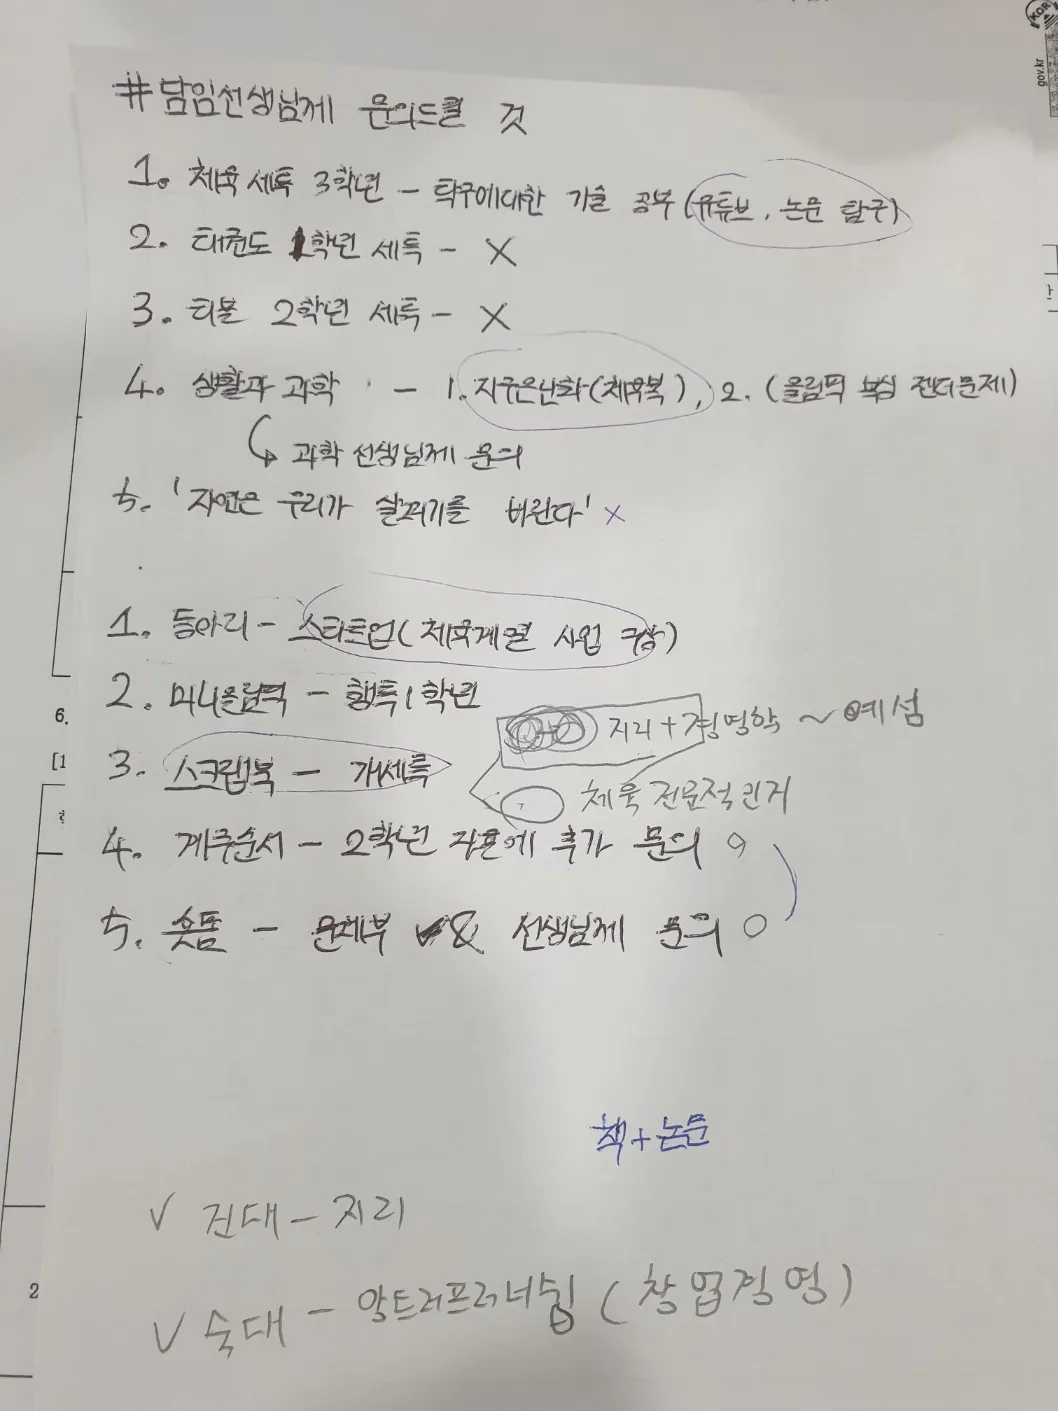 #담임선생님께 문의드릴 것
1. 체육 세특 3학년 - 탁구에대한 기술 공부(유튜브, 논문 탐구)
2. 태권도 1학년 세특 - X
3. 티볼 2학년 세특 - X
4. 생활과 과학 - 1. 지구온난화(체육복), 2. (올림픽 복싱 젠더문제)
과학 선생님께 문의
5. '자연은 우리가 살찌기를 바란다' X
1. 동아리 - 스타트업(체육계열 사업 구상)
2. 미니올림픽 - 행특 1학년
지리 + 경영학 ~ 예섬
3. 스크랩북 - 개세특
체육 전문적인거
4. 계주순서 - 2학년 자율에 추가 문의 O
5. 숏폼 - 문체부 & 선생님께 문의 O
책 + 논문
✓ 건대 - 지리
✓ 숙대 - 앙트러프러너십 (창업경영)
gov.kr
6.
[1
2